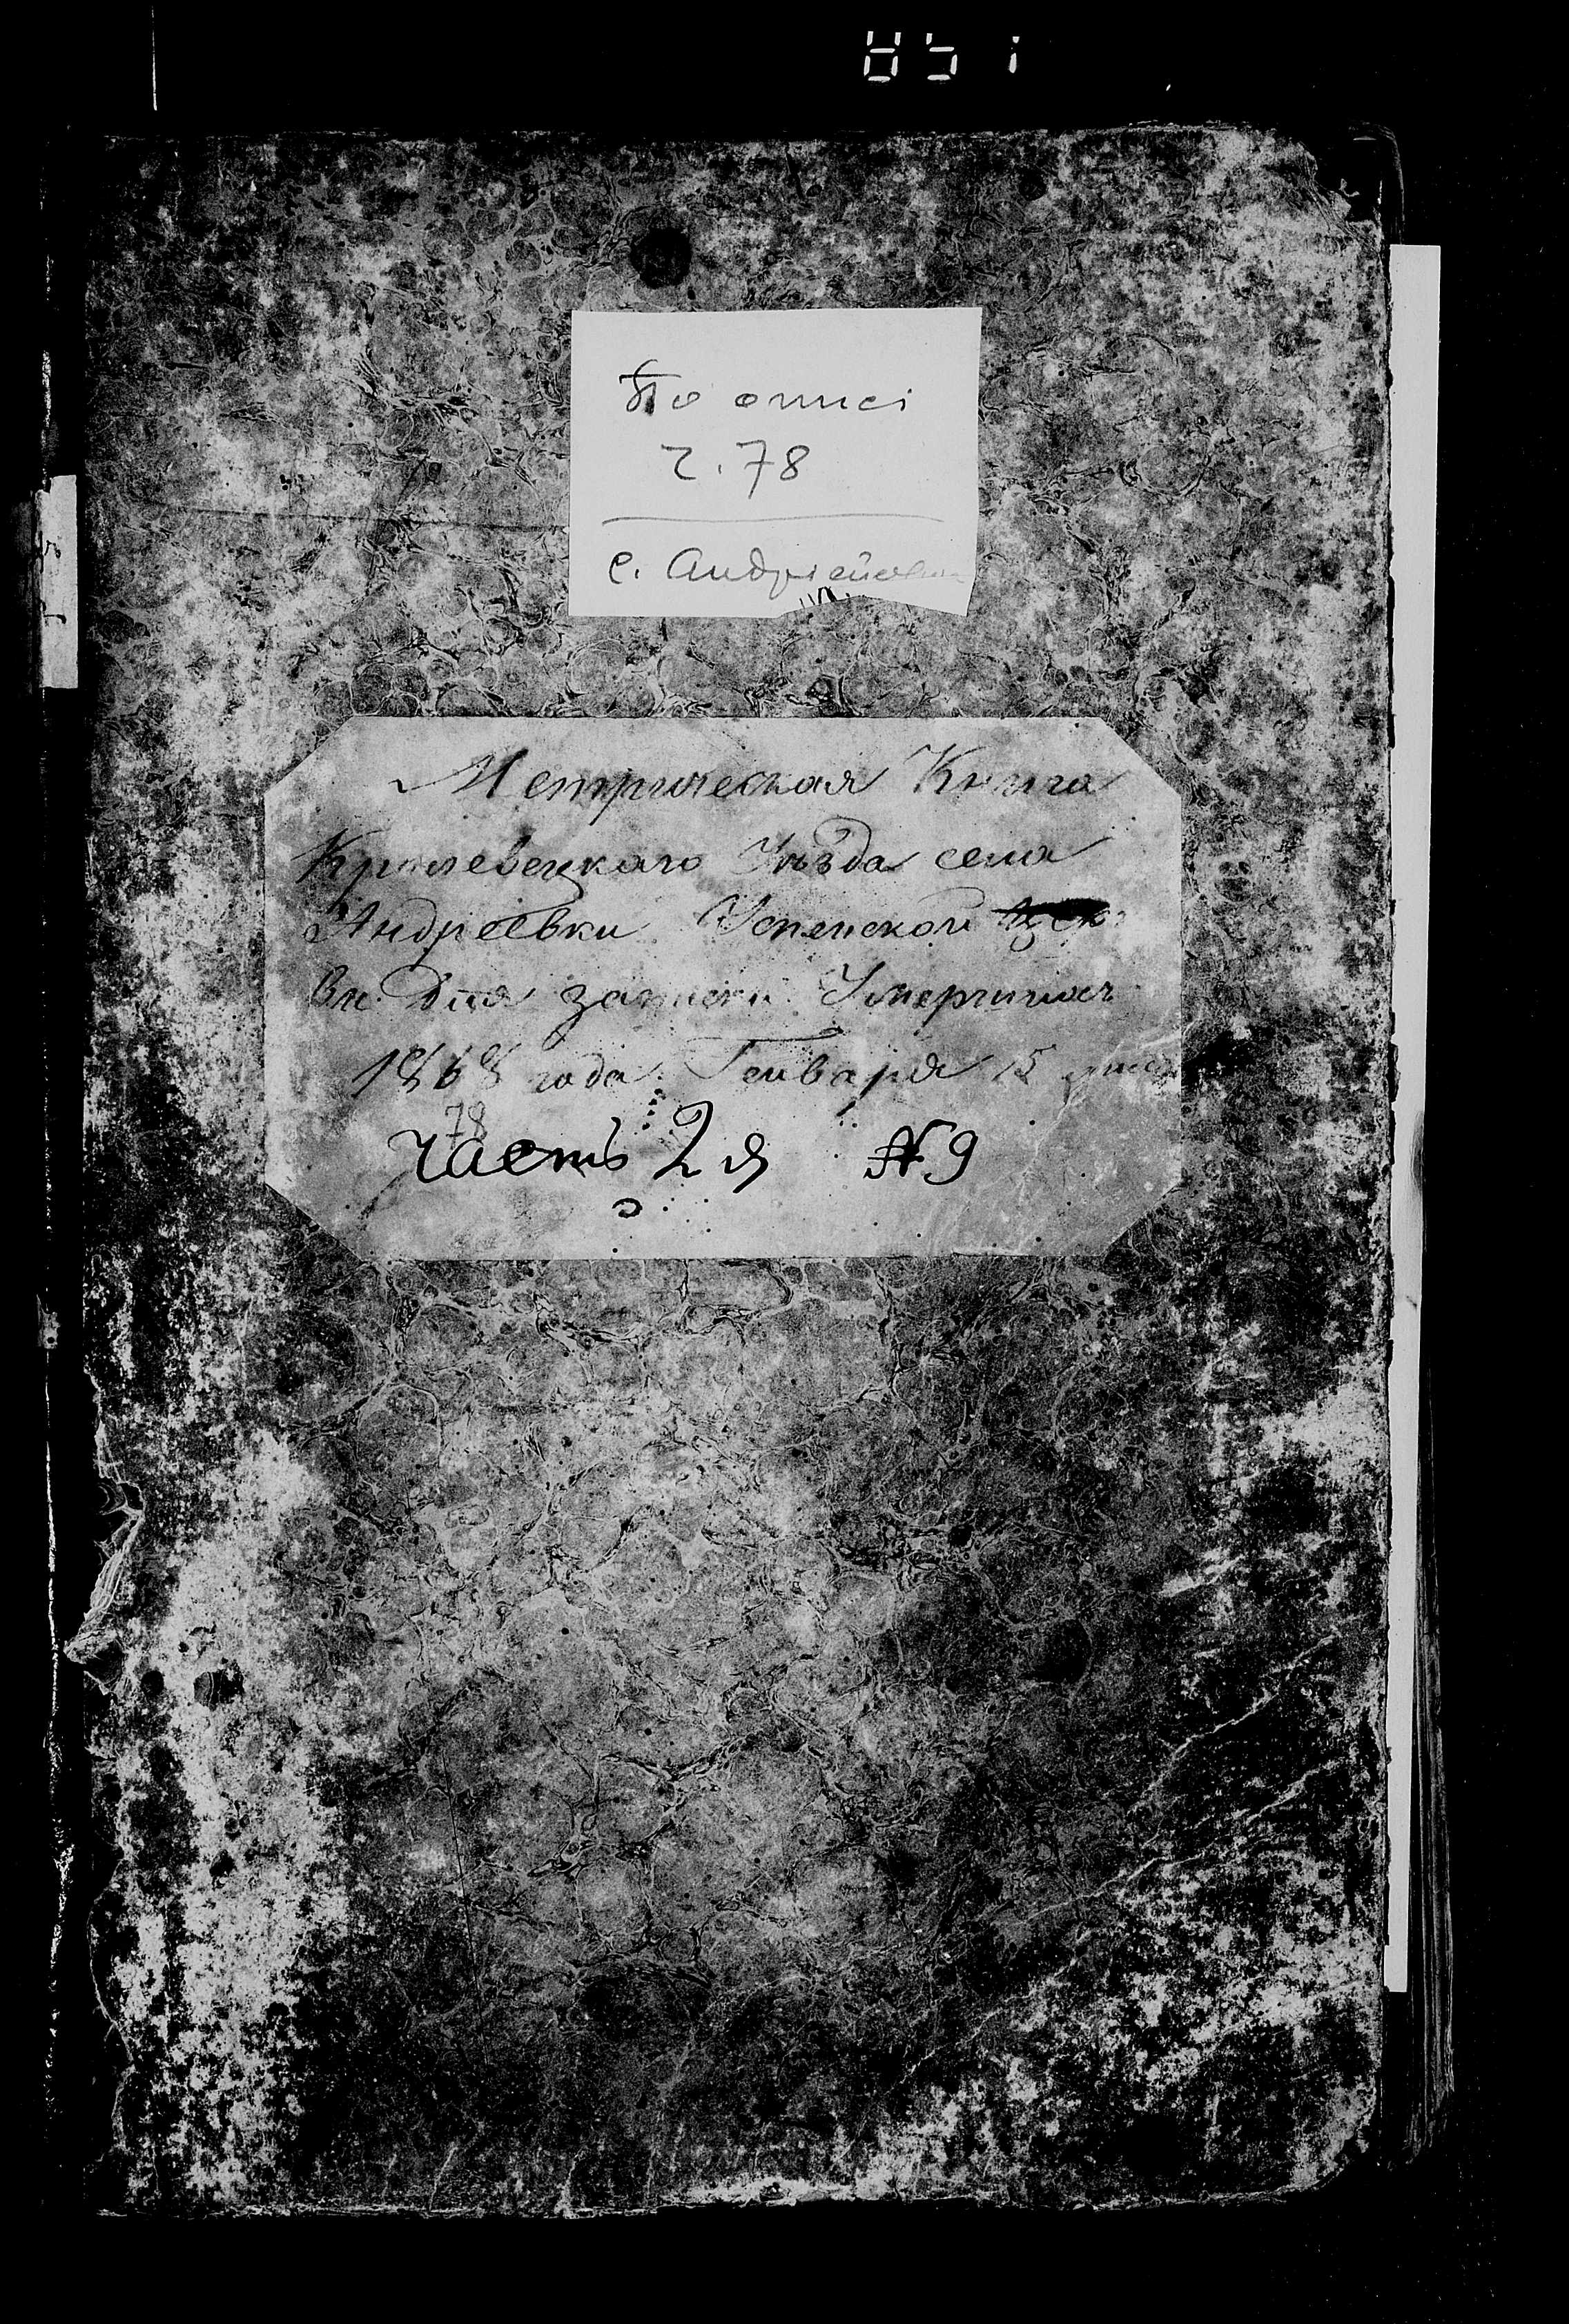 По описі
г. 78
с. Андріївка
Метрическая Книга
Кролевецкаго Уѣзда села
Андреевки Успенской Церк
ви для записки Умершихъ
1868 года Генваря 15 дня
78
Часть 2я № 9